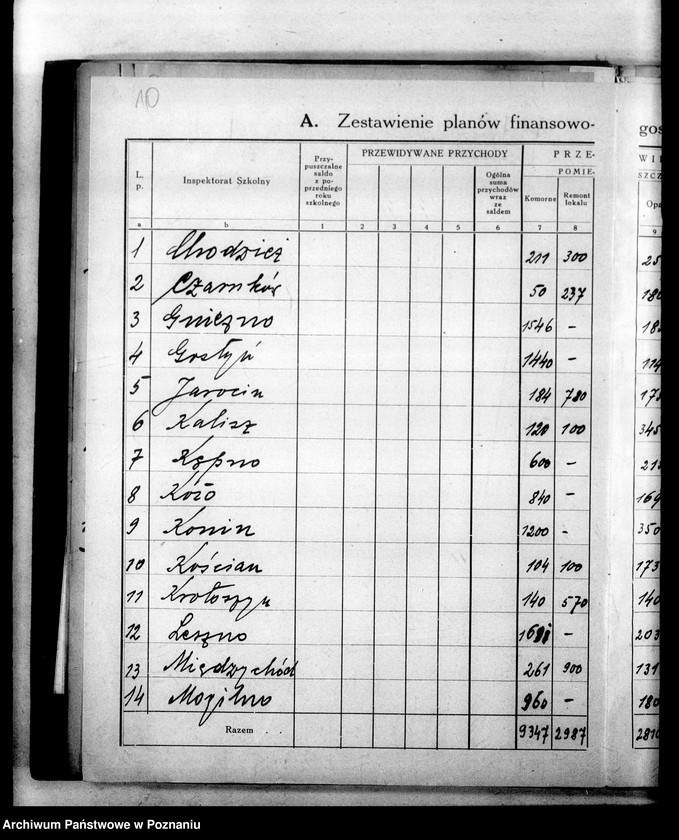 10
A. Zestawienie planów finansowo-
gos
L. p. Inspektorat Szkolny Przy-puszczalne saldo z po-przedniego roku szkolnego PRZEWIDYWANE PRZYCHODY Ogólna suma przychodów wraz ze saldem PRZE- POMIE- Komorne Remont lokalu
WI
SZCZ
Opa
a b 1 2 3 4 5 6 7 8 9
1 Chodzież 211 300 25
2 Czarnków 50 237 180
3 Gniezno 1546 - 18
4 Gostyń 1440 - 114
5 Jarocin 184 780 17
6 Kalisz 120 100 345
7 Kępno 600 - 21
8 Koło 840 - 169
9 Konin 1200 - 350
10 Kościan 104 100 173
11 Krotoszyn 140 570 140
12 Leszno - 203
13 Międzychód 261 900 131
14 Mogilno 960 - 180
Razem 9347 2987 2810
Archiwum Państwowe w Poznaniu